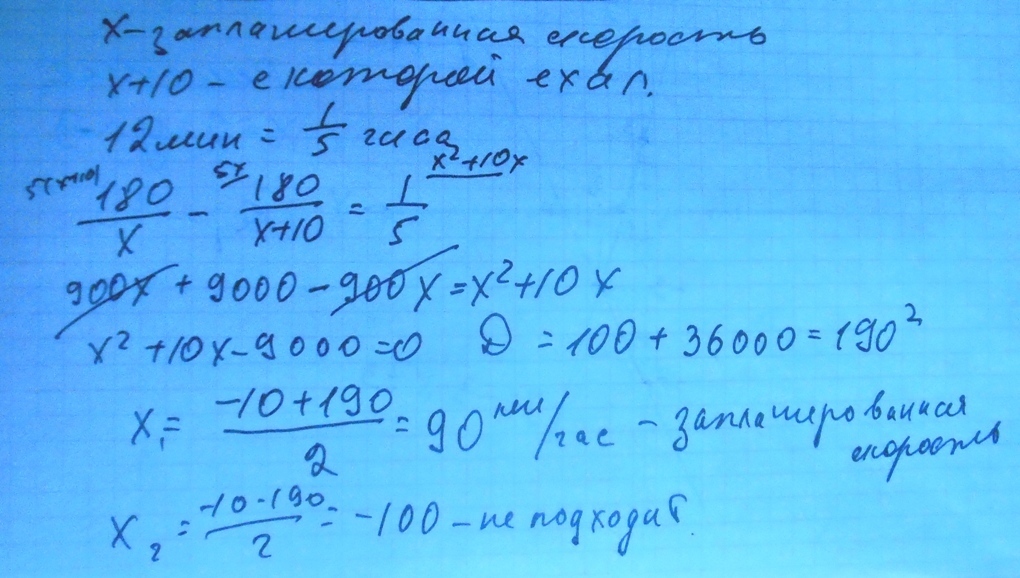 x - запланированная скорость
x+10 - с которой ехал.
12 мин = 1/5 часа
5(x+10) 180/x - 5x 180/(x+10) = 1/5 x²+10x
900x + 9000 - 900x = x²+10x
x² + 10x - 9000 = 0   D = 100 + 36000 = 190²
x₁ = (-10+190)/2 = 90 км/час - запланированная скорость
x₂ = (-10-190)/2 = -100 - не подходит